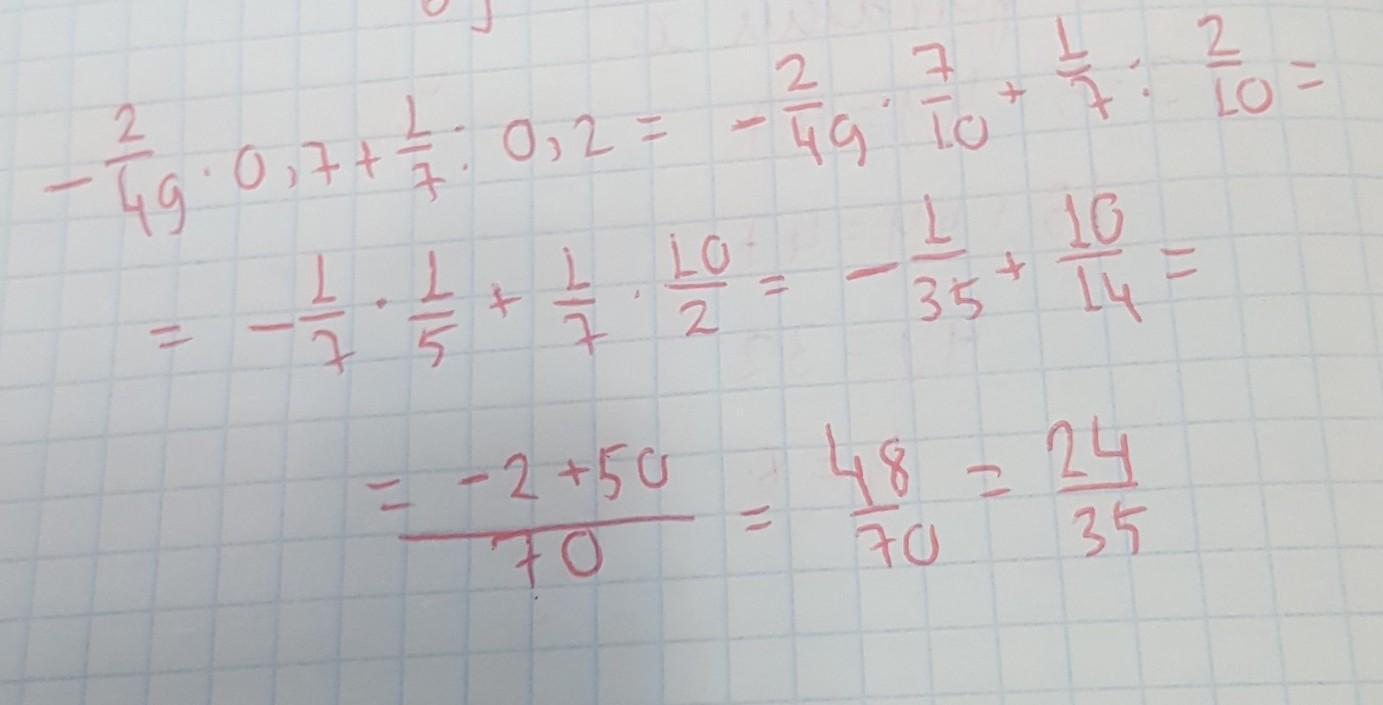 -2/49 · 0,7 + 1/7 : 0,2 = -2/49 · 7/10 + 1/7 : 2/10 =
= -1/7 · 1/5 + 1/7 · 10/2 = -1/35 + 10/14 =
= (-2+50)/70 = 48/70 = 24/35